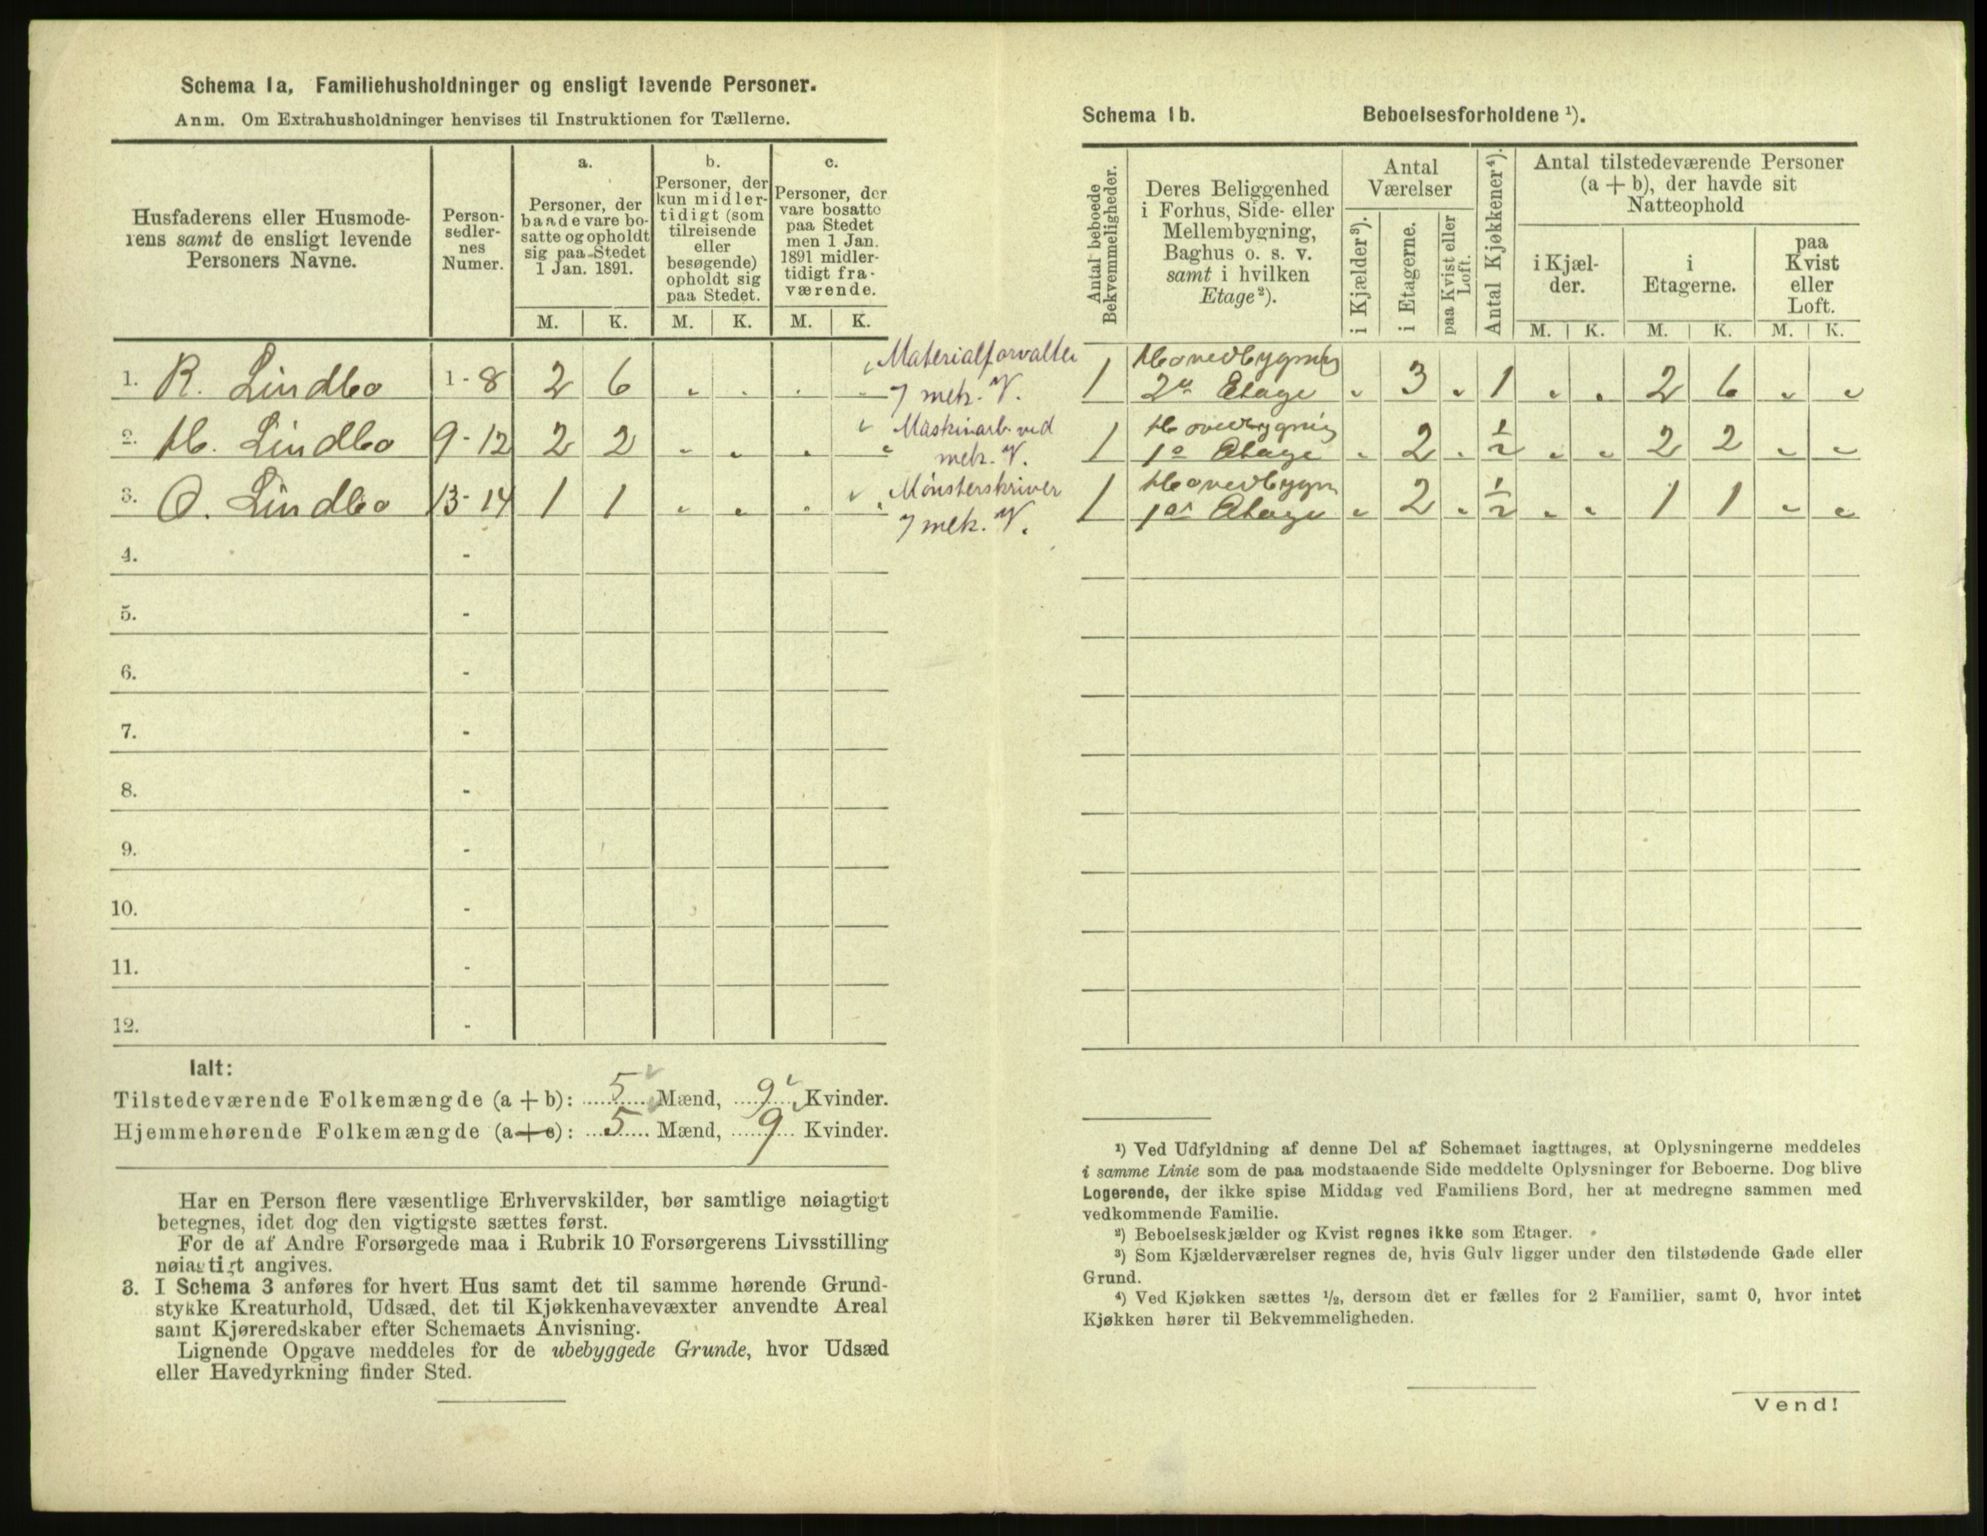 Schema 1a. Familiehusholdninger og ensligt levende Personer.
Anm. Om Extrahusholdninger henvises til Instruktionen for Tællerne.
Husfaderens eller Husmode-
rens samt de ensligt levende
Personers Navne.
Person-
sedler-
nes
Numer.
a.
Personer, der
baade vare bo-
satte og opholdt
sig paa Stedet
1 Jan. 1891.
b.
Personer, der
kun midler-
tidigt (som
tilreisende
eller
besøgende)
opholdt sig
paa Stedet.
c.
Personer, der
vare bosatte
paa Stedet
men 1 Jan.
1891 midler-
tidigt fra-
værende.
M. K. M. K. M. K.
1. R. Lindbo 1-8 2 6 „ „ . „ Materialforvalter
mek. V.
2. H. Lindbo 9-12 2 2 „ „ „ „ Maskinarb. ved
mek. V.
3. O. Lindbo 13-14 1 1 „ „ „ „ Mønsterskriver
mek. V.
4. -
5. -
6. -
7. -
8. -
9. -
10. -
11. -
12. -
Ialt:
Tilstedeværende Folkemængde (a + b): 5 Mænd, 9 Kvinder.
Hjemmehørende Folkemængde (a + c): 5 Mænd, 9 Kvinder.
Har en Person flere væsentlige Erhvervskilder, bør samtlige nøiagtigt
betegnes, idet dog den vigtigste sættes først.
For de af Andre Forsørgede maa i Rubrik 10 Forsørgerens Livsstilling
nøiagtigt angives.
3. I Schema 3 anføres for hvert Hus samt det til samme hørende Grund-
stykke Kreaturhold, Udsæd, det til Kjøkkenhavevæxter anvendte Areal
samt Kjøreredskaber efter Schemaets Anvisning.
Lignende Opgave meddeles for de ubebyggede Grunde, hvor Udsæd
eller Havedyrkning finder Sted.
Schema 1b. Beboelsesforholdene ¹).
Antal beboede
Bekvemmeligheder.
Deres Beliggenhed
i Forhus, Side- eller
Mellembygning,
Baghus o. s. v.
samt i hvilken
Etage²).
Antal
Værelser
i Kjælder³).
i Etagerne.
paa Kvist eller
Loft.
Antal Kjøkkener⁴).
Antal tilstedeværende Personer
(a + b), der havde sit
Natteophold
i Kjæl-
der.
i
Etagerne.
paa
Kvist
eller
Loft.
M. K. M. K. M. K.
1 Hovedbygning
2den Etage „ 3 „ 1 „ „ 2 6 „ „
1 Hovedbygnig
1e Etage „ 2 „ ½ „ „ 2 2 „ „
1 Hovedbygn
1ste Etage „ 2 „ ½ „ „ 1 1 „ „
¹) Ved Udfyldning af denne Del af Schemaet iagttages, at Oplysningerne meddeles
i samme Linie som de paa modstaaende Side meddelte Oplysninger for Beboerne. Dog blive
Logerende, der ikke spise Middag ved Familiens Bord, her at medregne sammen med
vedkommende Familie.
²) Beboelseskjælder og Kvist regnes ikke som Etager.
³) Som Kjælderværelser regnes de, hvis Gulv ligger under den tilstødende Gade eller
Grund.
⁴) Ved Kjøkken sættes ½, dersom det er fælles for 2 Familier, samt 0, hvor intet
Kjøkken hører til Bekvemmeligheden.
Vend!